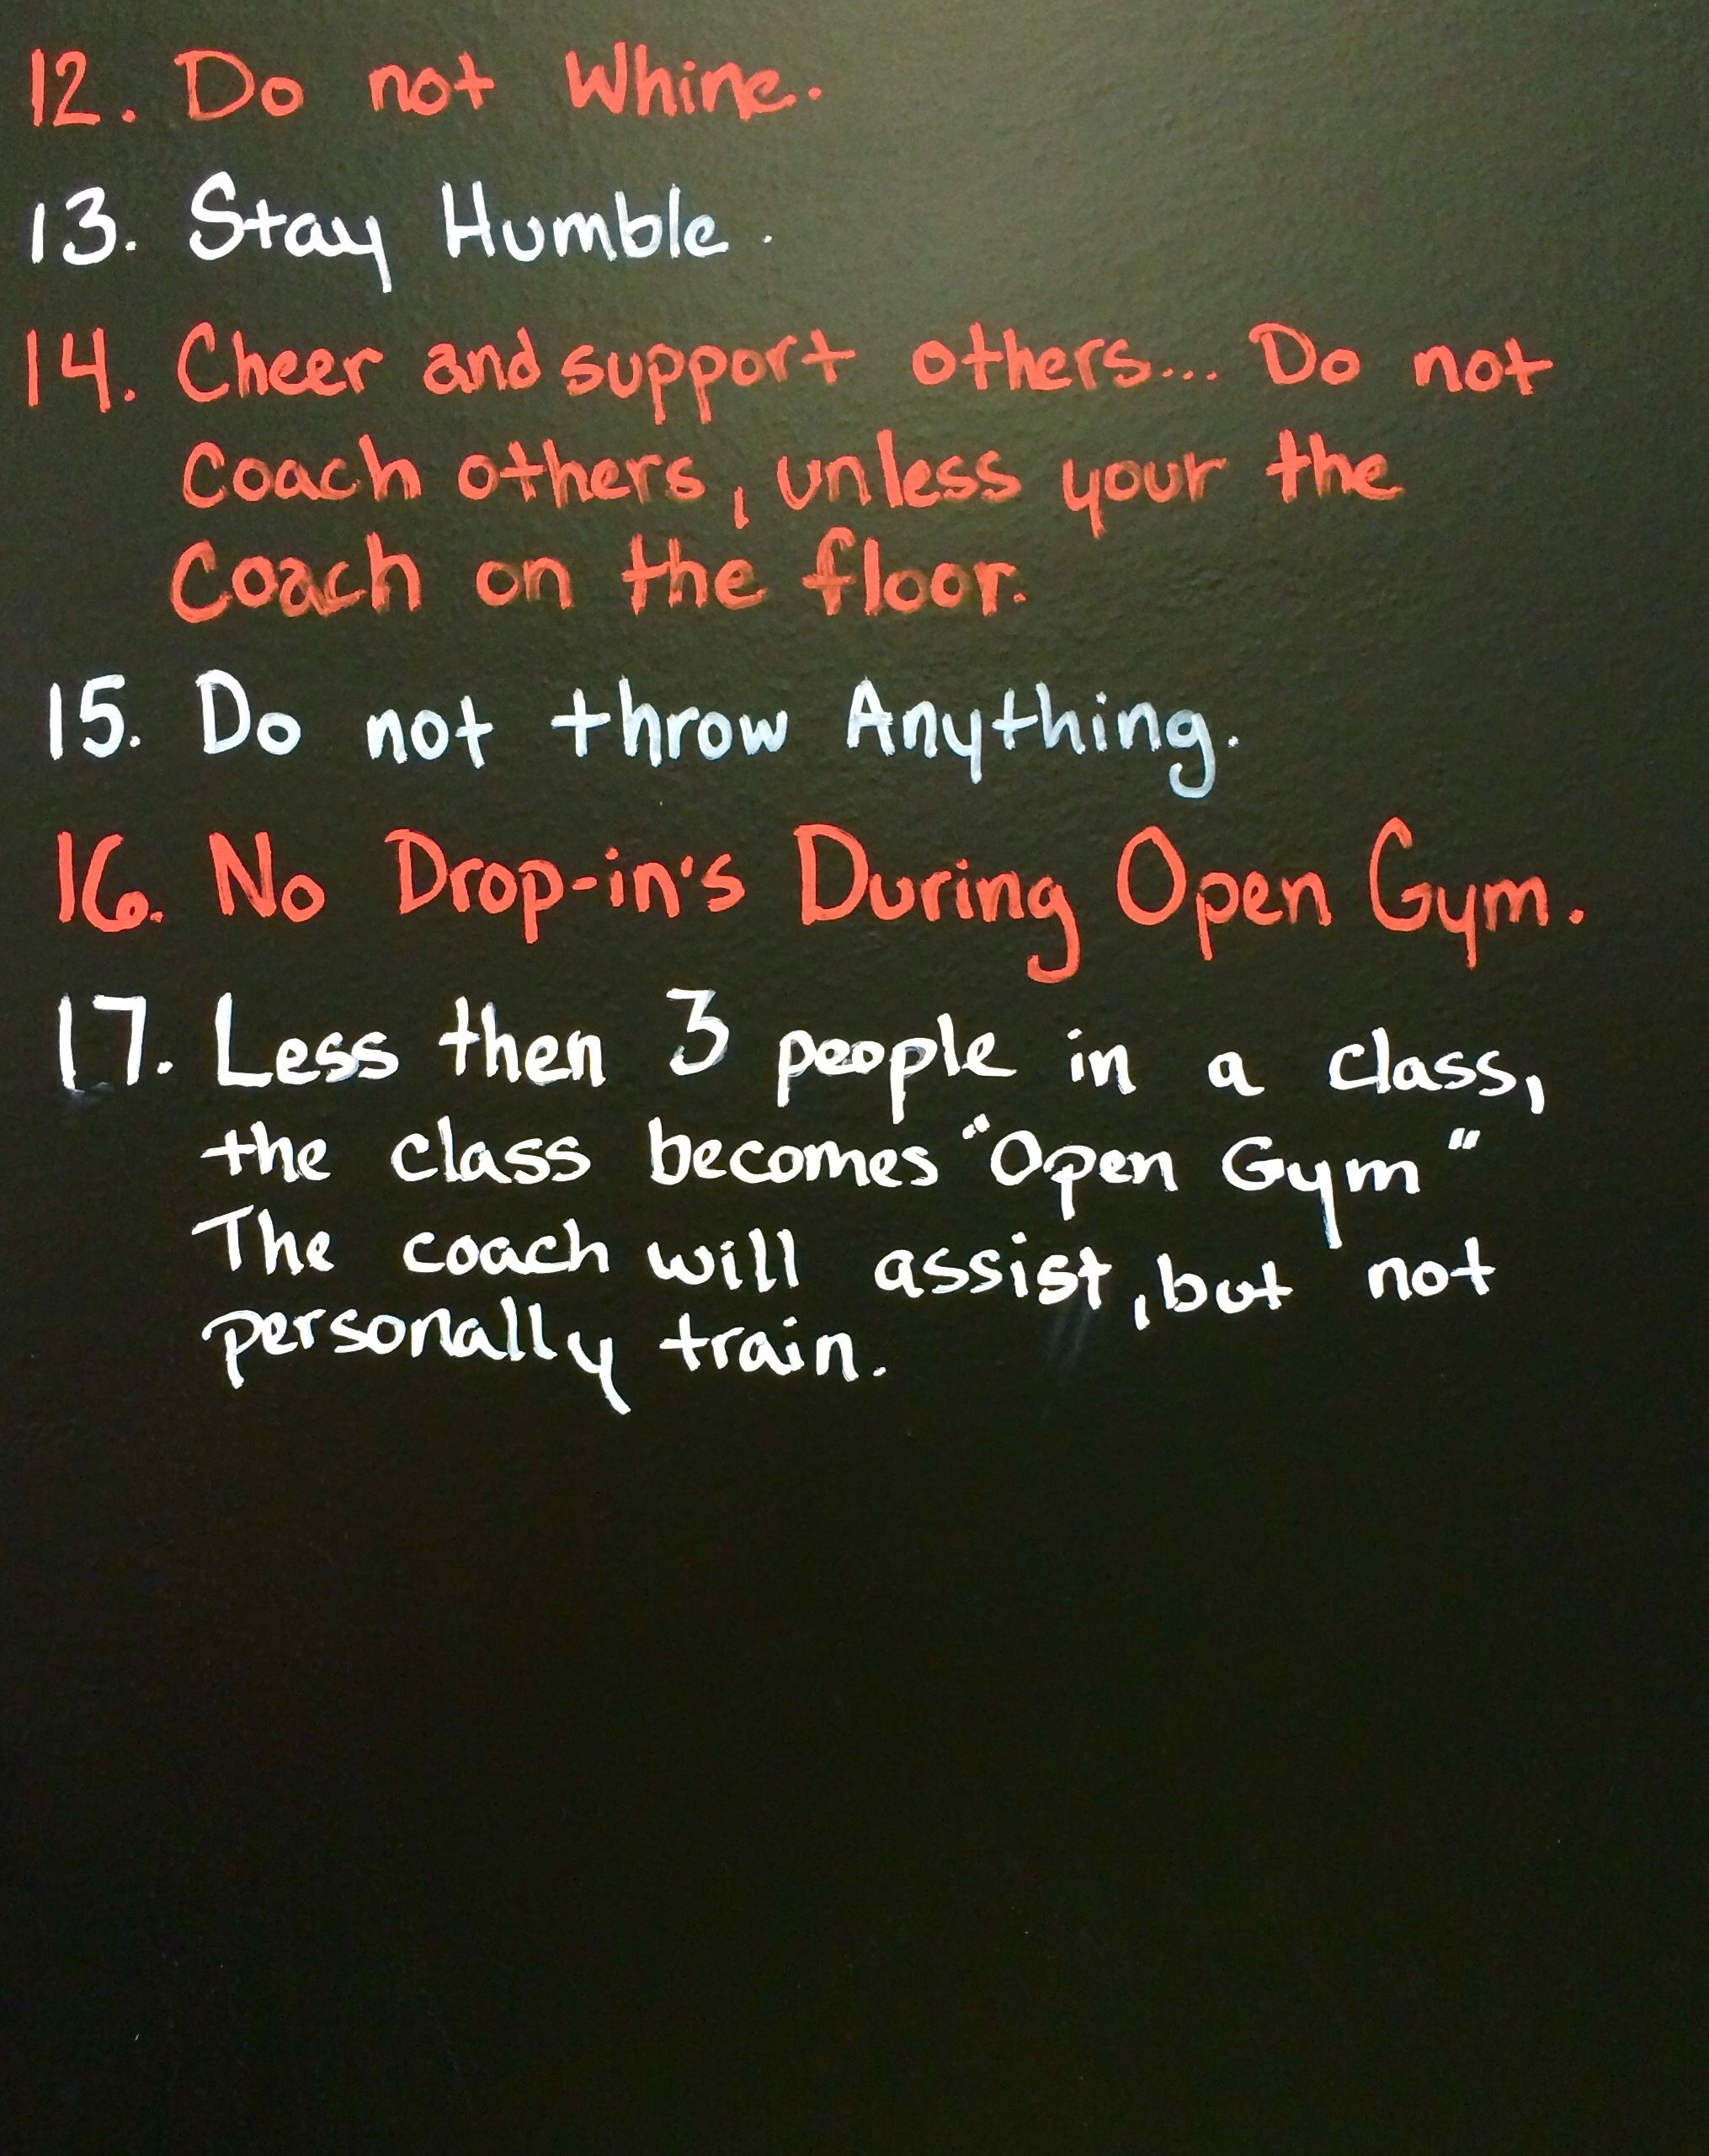 12. Do not Whine.
13. Stay Humble.
14. Cheer and support others... Do not
Coach others, unless your the
Coach on the floor.
15. Do not throw Anything.
16. No Drop-in's During Open Gym.
17. Less then 3 people in a class,
the class becomes "Open Gym"
The coach will assist, but not
personally train.